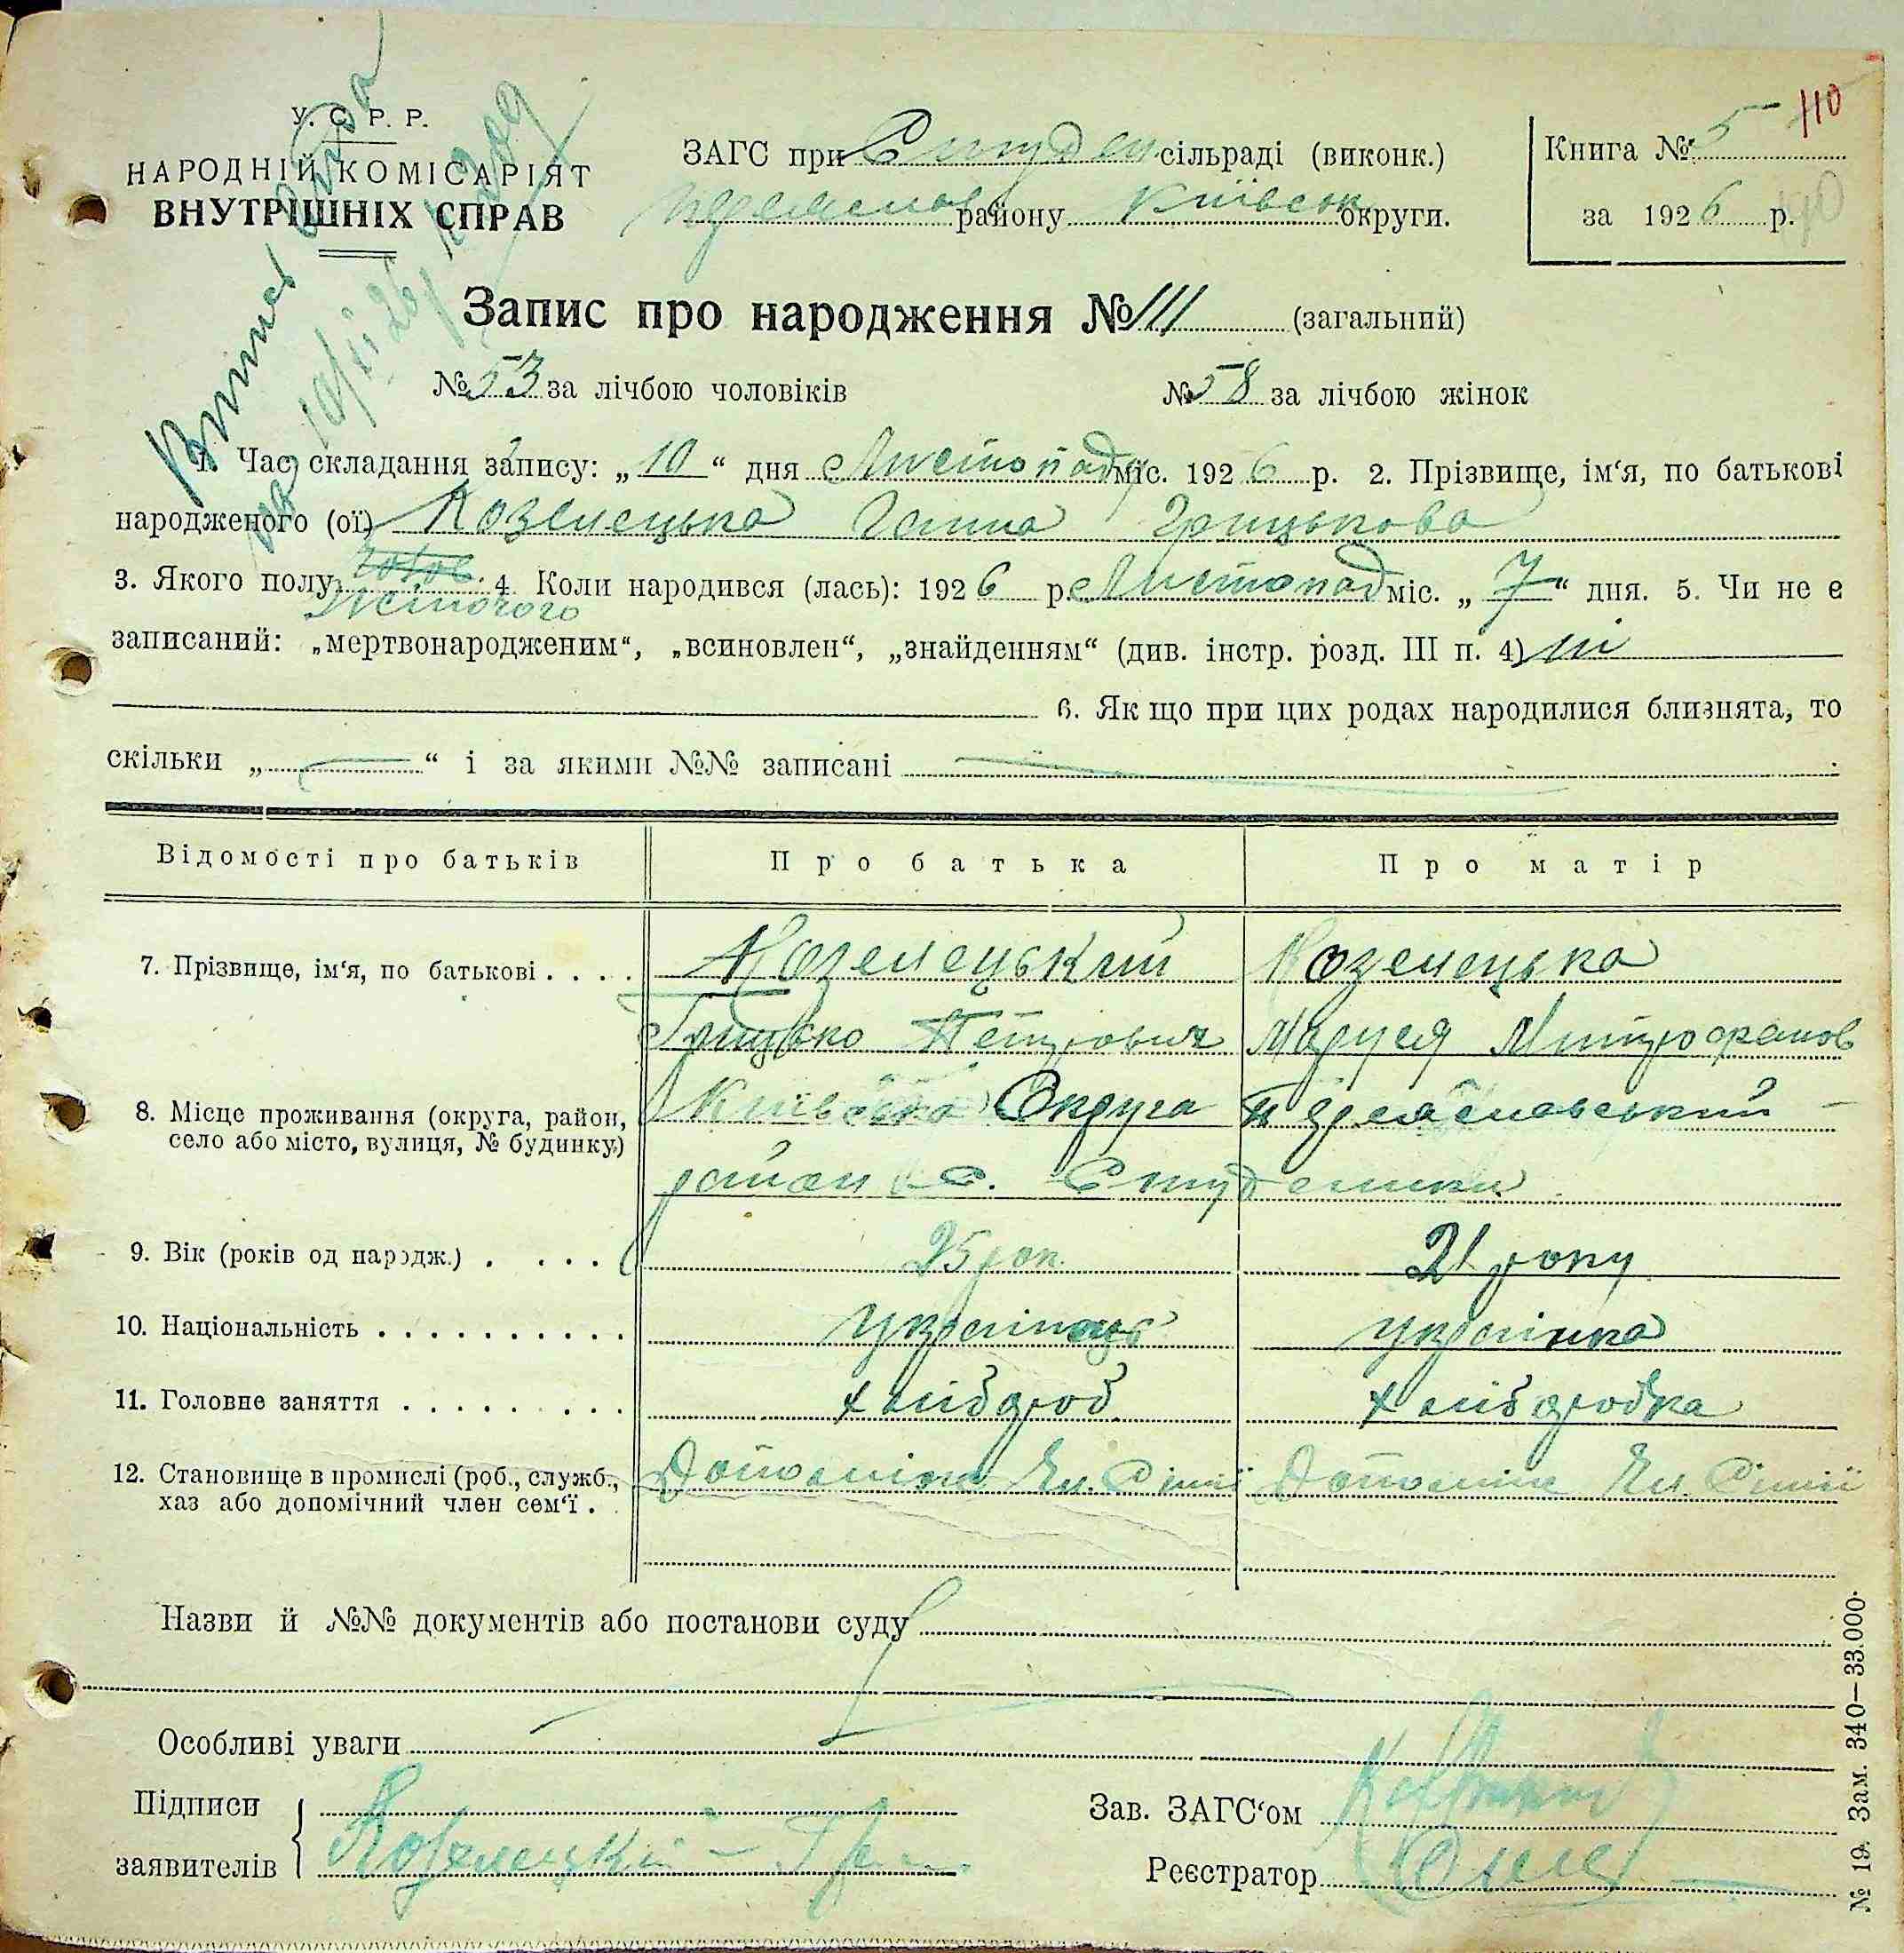 У. С. Р. Р.
НАРОДНІЙ КОМІСАРІЯТ
ВНУТРІШНІХ СПРАВ
ЗАГС при Студен сільраді (виконк.)
району Київськ округи.
Книга № 5 110
за 1926 р.
Запис про народження № 111 (загальний)
№ 53 за лічбою чоловіків № 58 за лічбою жінок
1. Час складання запису: „10“ дня Листопад міс. 1926 р. 2. Прізвище, ім'я, по батькові
народженого (ої) Козелецька Ганна Грицькова
3. Якого полу жіночого 4. Коли народився (лась): 1926 р. Листопад міс. „7“ дня. 5. Чи не є
записаний: „мертвонародженим“, „всиновлен“, „знайденням“ (див. інстр. розд. III п. 4) ні
6. Як що при цих родах народилися близнята, то
скільки „—“ і за якими №№ записані —
Відомості про батьків Про батька Про матір
7. Прізвище, ім'я, по батькові . . . . Козелецький Козелецька
Грицько Петрович Маруся Митрофанов
8. Місце проживання (округа, район, село або місто, вулиця, № будинку) Київська Округа Переяславський
район с. Студеники
9. Вік (років од народж.) . . . . . 25 рок. 21 року
10. Національність . . . . . . . . . . українець українка
11. Головне заняття . . . . . . . . . хлібороб хліборобка
12. Становище в промислі (роб., служб., хаз або допомічний член сем'ї . Допоміж Чл. Сімії Допоміж Чл. Сімії
Назви й №№ документів або постанови суду
Особливі уваги
Підписи
заявителів Козелецкий
Зав. ЗАГС'ом
Реєстратор
№ 19. Зам. 340—33.000.